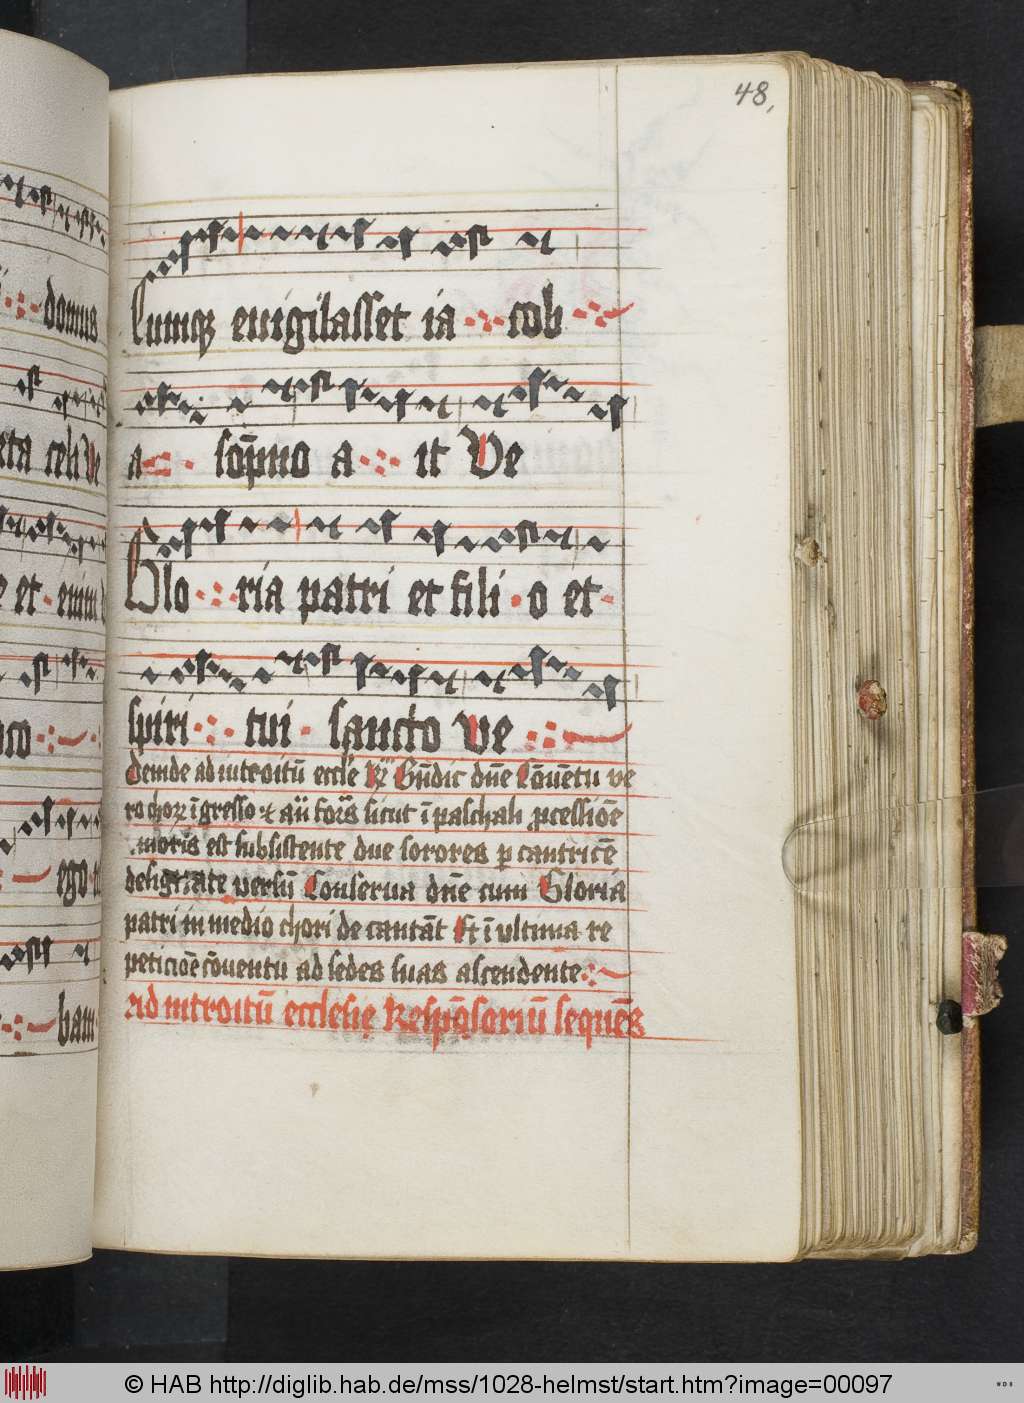 48,
domus
Cumqꝫ euigilasset ia cob
eta celi Ve
a so̅pno a it Ve
e et enim
Glo ria patri et fili o et
spiri tui sancto ve
Deinde ad introitū eccle Bn̄dic dn̄e Cōuētu ve
ro choꝝ īgresso ⁊ ... foris sicut ī paschali ꝓcessiōe
moris est subsistente due sorores ꝑ cantricē
... versū Conserua dn̄e cum Gloria
ego
patri in medio chori de cantāt Et ī ultima re
peticiōe cōuentu ad sedes suas ascendente
bam
Ad introitū ecclesie Respōsoriū sequēs
© HAB http://diglib.hab.de/mss/1028-helmst/start.htm?image=00097